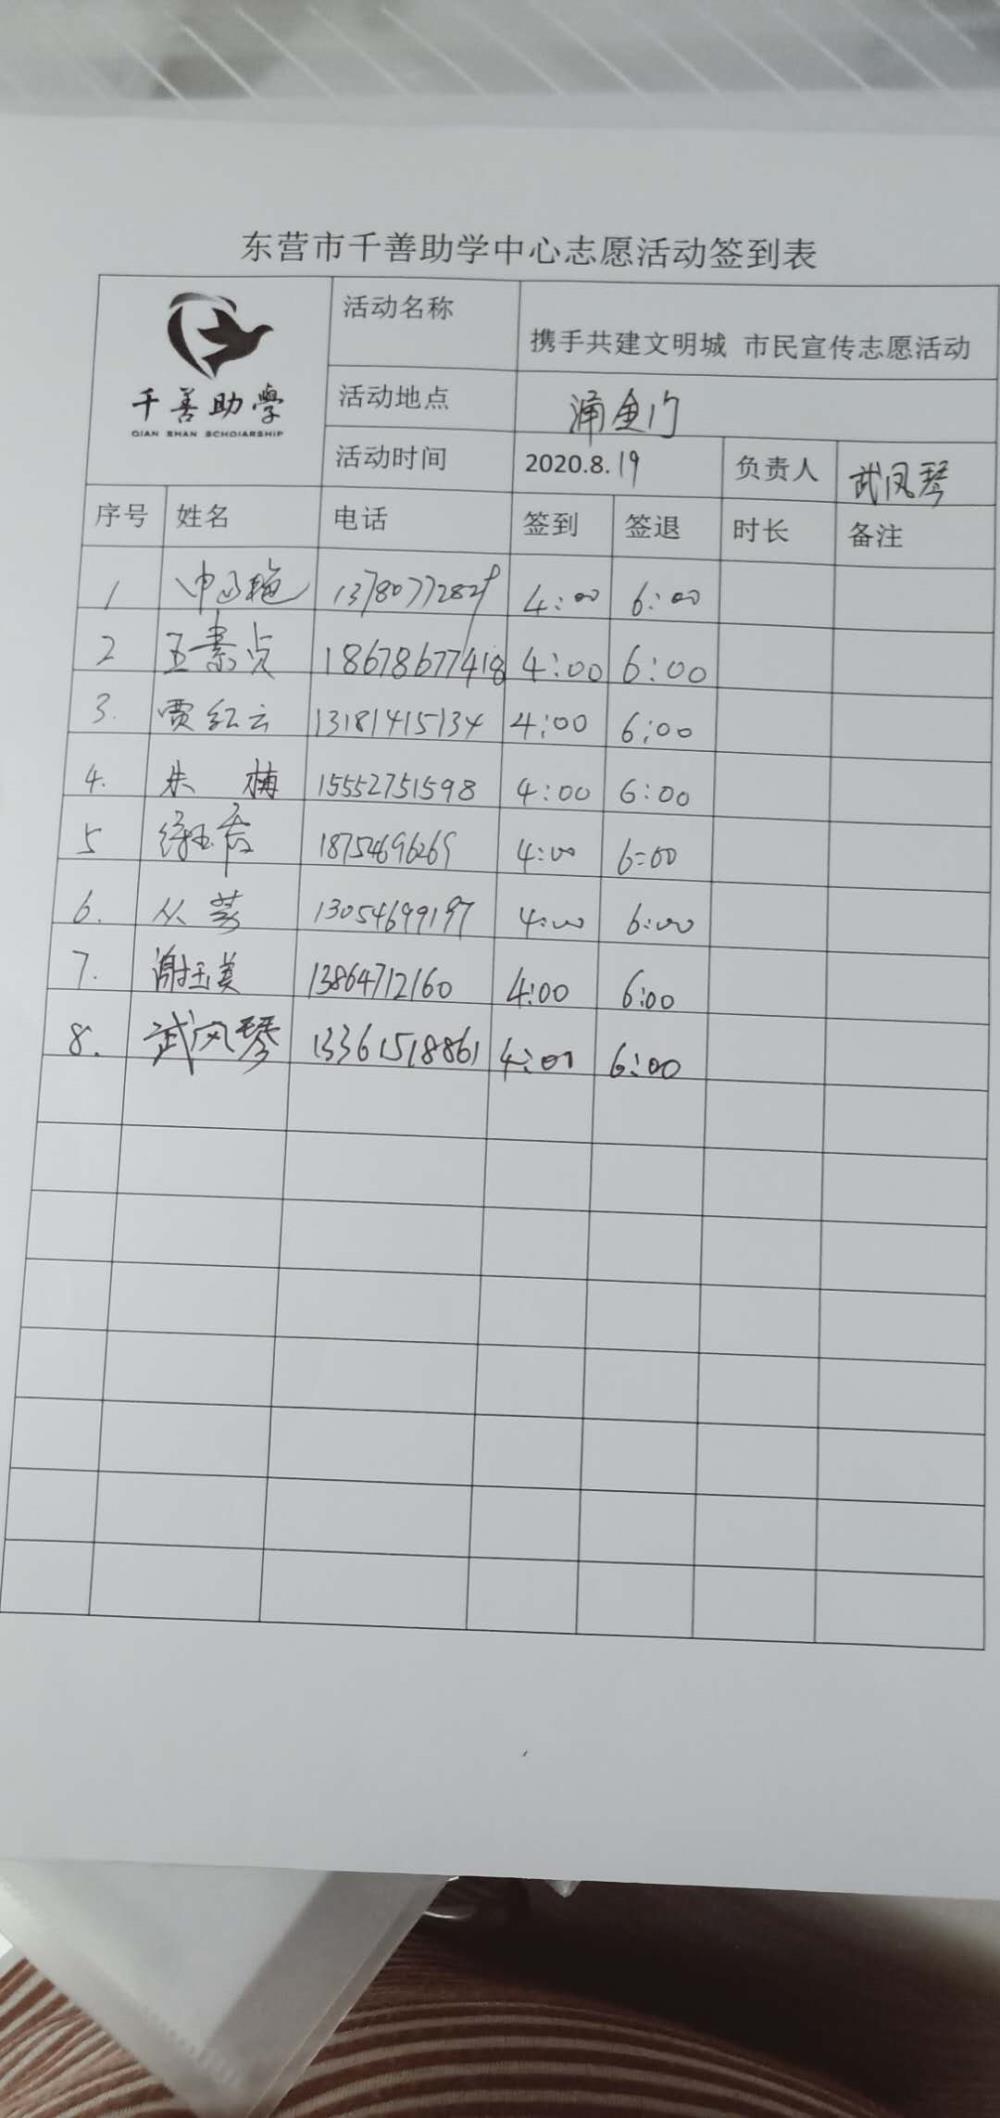 东营市千善助学中心志愿活动签到表
千善助學
QIAN SHAN SCHOIARSHIP
活动名称
携手共建文明城 市民宣传志愿活动
活动地点 涌金门
活动时间 2020.8.19 负责人 武凤琴
序号 姓名 电话 签到 签退 时长 备注
1 1378077282 4:00 6:00
2 王素贞 18678677418 4:00 6:00
3. 贾红云 13181415134 4:00 6:00
4. 朱梅 15552751598 4:00 6:00
5 18754696269 4:00 6:00
6. 丛 13054699197 4:00 6:00
7. 谢玉美 13864712160 4:00 6:00
8. 武凤琴 13361518861 4:00 6:00